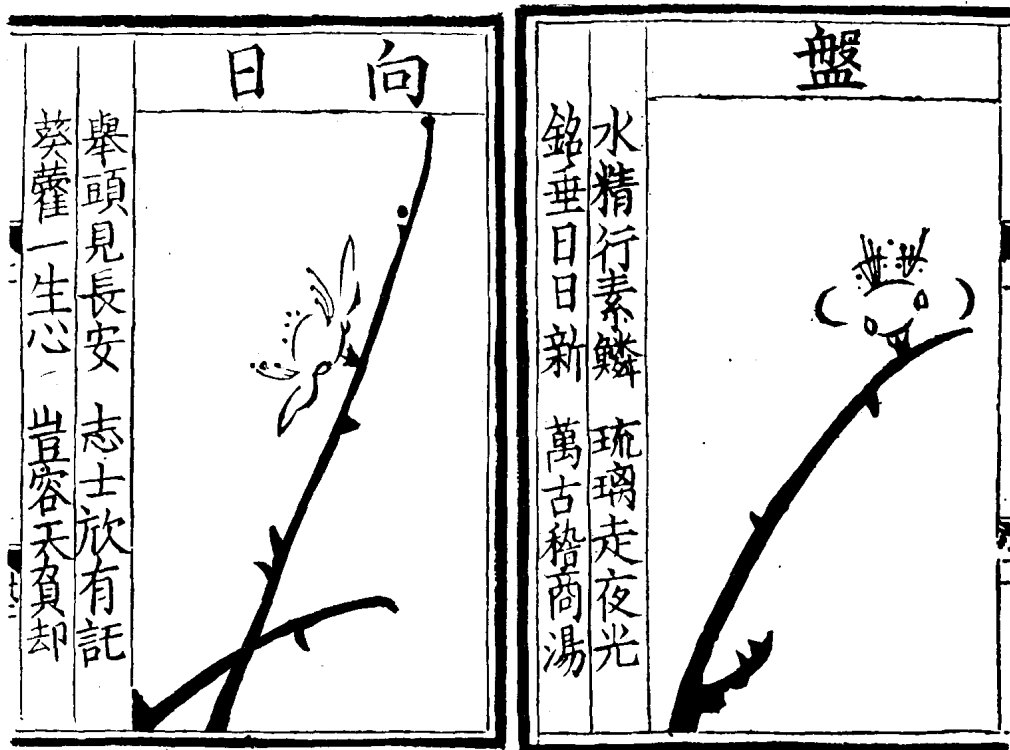 盤
水精行素鱗 琉璃走夜光
銘垂日日新 萬古稽商湯
向日
舉頭見長安 志士欣有託
葵藿一生心 豈容天負却